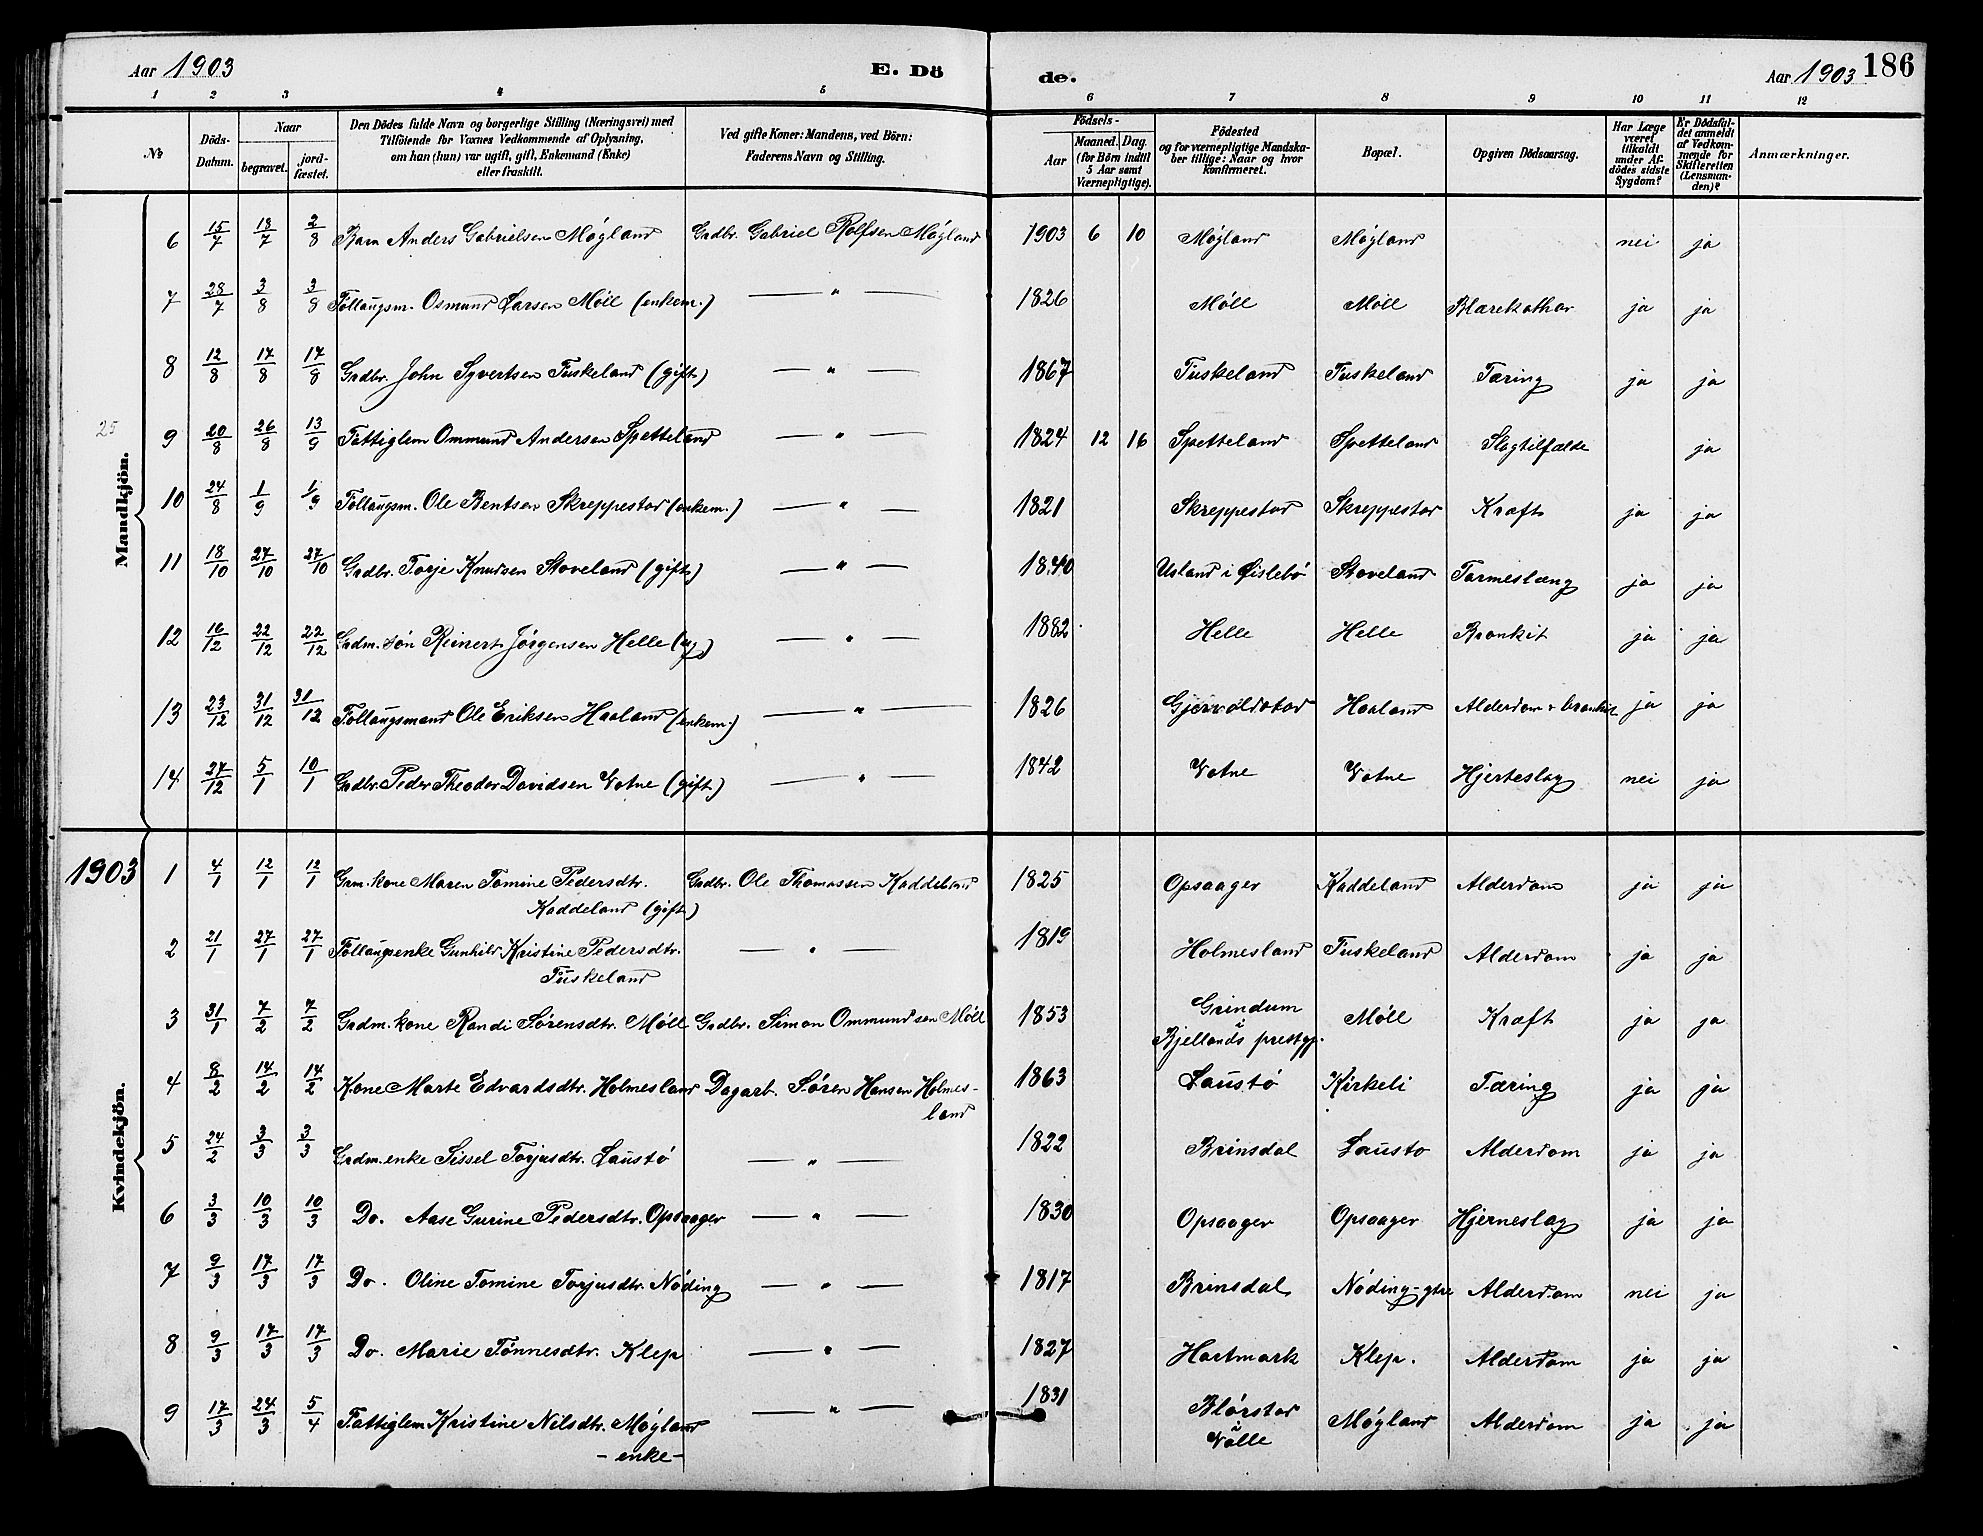 Aar 1903
E. Dö
de.
Aar 1903 186
1 2 3 4 5 6 7 8 9 10 11 12
No
Döds-Datum.
Naar
begravet.
jord-fæstet.
Den Dödes fulde Navn og borgerlige Stilling (Næringsvei) med
Tilföiende for Voxnes Vedkommende af Oplysning,
om han (hun) var ugift, gift, Enkemand (Enke)
eller fraskilt.
Ved gifte Koner: Mandens, ved Börn:
Faderens Navn og Stilling.
Födsels-
Aar
Maaned. Dag.
(for Börn indtil
5 Aar samt
Værnepligtige).
Födested
og for værnepligtige Mandska-
ber tillige: Naar og hvor
konfirmeret.
Bopæl.
Opgiven Dödsaarsag.
Har Læge
været
tilkaldt
under Af-
dödes sidste
Sygdom?
Er Dödsfal-
det anmeldt
af Vedkom-
mende for
Skifteretten
(Lensman-
den)?
Anmærkninger.
25
Mandkjön.
6 15/7 18/7 2/8 Barn Anders Gabrielsen Møgland Grdbr. Gabriel Rolfsen Møgland 1903 6 10 Møgland Møgland nei ja
7 28/7 3/8 3/8 Føllaugsm. Osmund Larsen Möll (enkem.) — " — 1826 Möll Möll Blærekathar ja ja
8 12/8 17/8 17/8 Grdbr. John Syvertsen Fuskeland (gift) — " — 1867 Fuskeland Fuskeland Tæring ja ja
9 20/8 26/8 13/9 Fattiglem Ommund Andersen Spetteland — " — 1824 12 16 Spetteland Spetteland Slagtilfælde ja
10 24/8 1/9 1/9 Føllaugsm. Ole Bentsen Skreppestad (enkem.) — " — 1821 Skreppestad Skreppestad Kræft ja ja
11 18/10 27/10 27/10 Grdbr. Torje Knudsen Stoveland (gift) — " — 1840 Usland i Øislebø Stoveland Tarmeslæng ja ja
12 16/12 22/12 22/12 Grdm. søn Reinert Jørgensen Helle (ug.) — " — 1882 Helle Helle Bronkit ja ja
13 23/12 31/12 31/12 Føllaugsmand Ole Eriksen Haaland (enkem.) — " — 1826 Gjervoldstad Haaland Alderdom + bronkit ja ja
14 27/12 5/1 10/1 Grdbr. Peder Theodor Davidsen Votne (gift) — " — 1842 Votne Votne Hjerteslag nei ja
1903
Kvindekjön.
1 4/1 12/1 12/1 Grm. kone Maren Tomine Pedersdtr. Grdbr. Ole Thomassen Kaddeland 1825 Opsaager Kaddeland Alderdom ja ja
Kaddeland (gift)
2 21/1 27/1 27/1 Føllaugsenke Gunhild Kristine Pedersdtr. — " — 1819 Holmesland Fuskeland Alderdom ja ja
Fuskeland
3 31/1 7/2 7/2 Grdm. kone Randi Sørensdtr. Möll Grdbr. Simon Ommundsen Möll 1853 Grindum i Möll Kræft ja ja
Bjellands prestgj.
4 8/2 14/2 14/2 Kone Marte Edvardsdtr. Holmesland Dagarb. Søren Hansen Holmes- 1863 Laustø Kirkeli Tæring ja ja
land
5 24/2 3/3 3/3 Grdm. enke Sissel Torjusdtr. Laustø — " — 1822 Brinsdal Lausto Alderdom ja ja
6 3/3 10/3 10/3 Do. Aase Gurine Pedersdtr. Opsaager — " — 1830 Opsaager Opsaager Hjerneslag ja ja
7 9/3 17/3 17/3 Do. Oline Tomine Torjusdtr. Nöding — " — 1817 Brinsdal Nöding-gtre Alderdom nei ja
8 9/3 17/3 17/3 Do. Marie Tönnesdtr. Klep — " — 1827 Hartmark Klep. Alderdom ja ja
9 17/3 24/3 5/4 Fattiglem Kristine Nilsdtr. Møgland — " — 1831 Blørstad i Møgland Alderdom ja ja
-enke- Valle